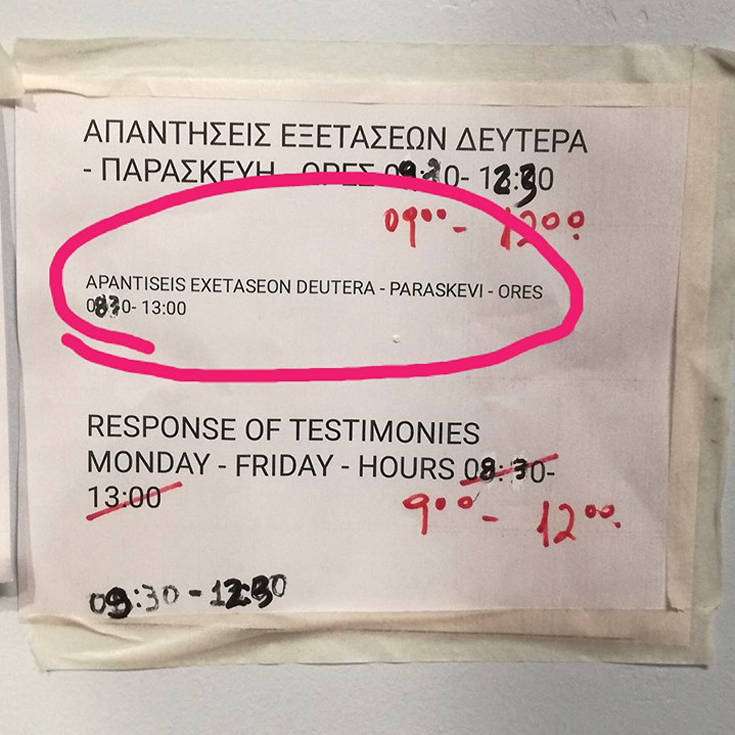 ΑΠΑΝΤΗΣΕΙΣ ΕΞΕΤΑΣΕΩΝ ΔΕΥΤΕΡΑ
- ΠΑΡΑΣΚΕΥΗ ΟΡΕΣ
09⁰⁰ - 12⁰⁰
APANTISEIS EXETASEON DEUTERA - PARASKEVI - ORES
0830- 13:00
RESPONSE OF TESTIMONIES
MONDAY - FRIDAY - HOURS 08:30-
13:00
9⁰⁰ - 12⁰⁰
09:30 - 12:30